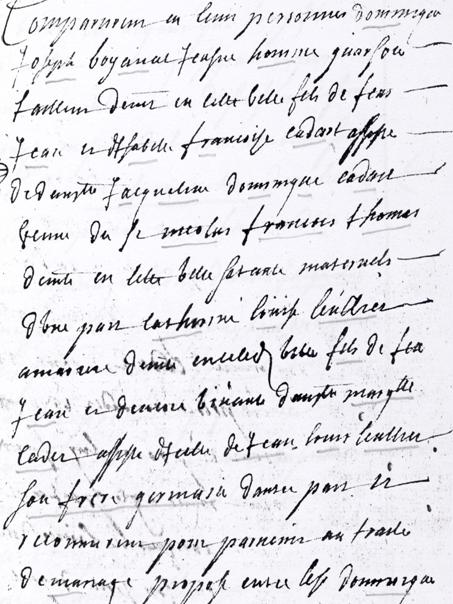 Comparurent en leurs personnes dominique
Joseph boyaval jeusne homme garson
tailleur demt en cette ville fils de feus
Jean et Isabelle francoise cadart assiste
de damlle Jacqueline dominique cadart
veuve du Sr nicolas francois thomas
demte en cette ville sa tante maternele
d'une part catherinne louise
demte en cette ville fille de feu
Jean et de encore vivante damlle
cader assistée de Jean louis
son frere germain d'autre part et
reconnurent pour parvenir au traité
de mariage proposé entre lesd dominique